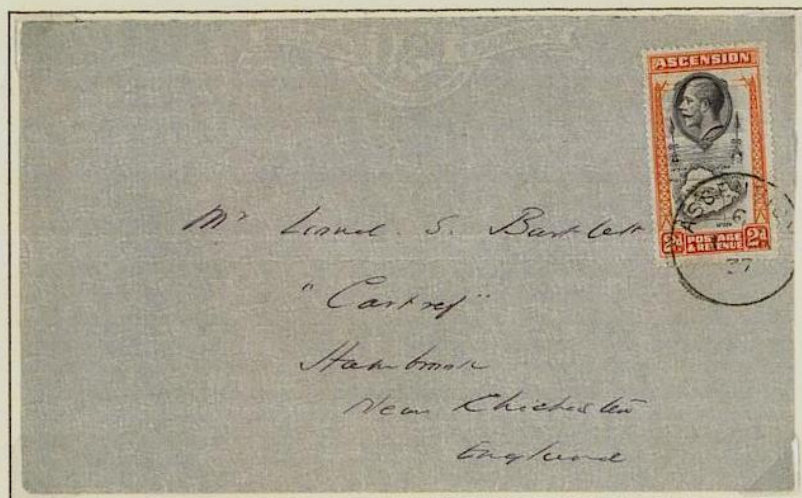 ASCENSION
2d POSTAGE & REVENUE 2d
ASCENSION
6
37
Mr Lionel S. Bartlett
"Cartref"
Hambrook
Near Chichester
England